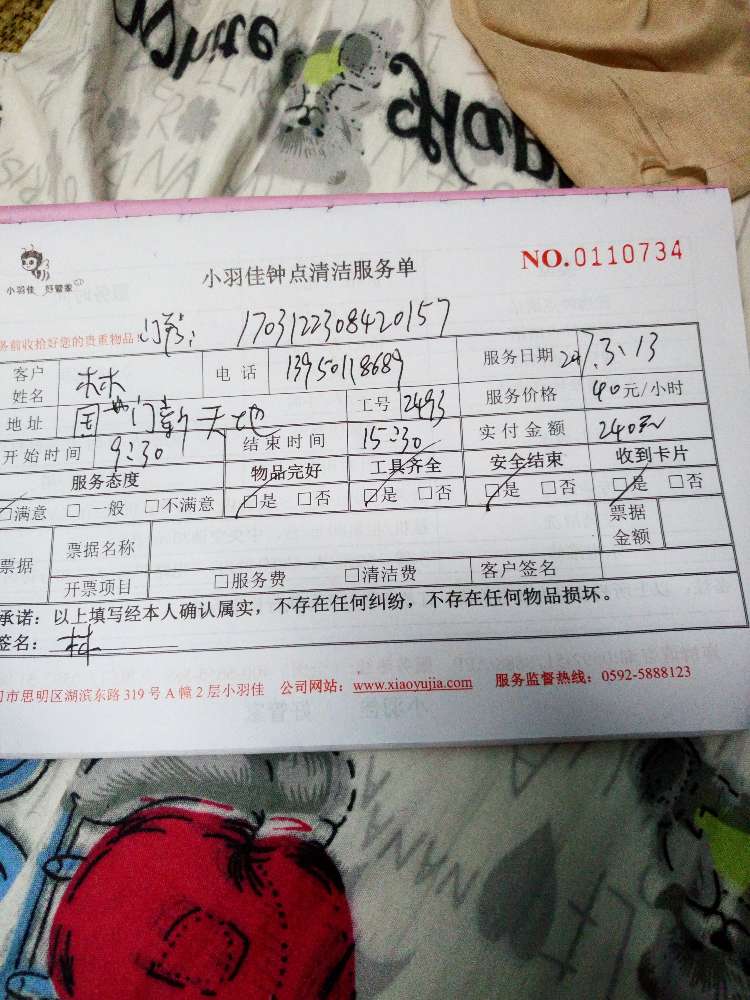 White
小羽佳 好管家
小羽佳钟点清洁服务单
NO.0110734
务前收拾好您的贵重物品!
1703122308420157
客户姓名 林 电话 13950118689 服务日期 2017.3.13
地址 国 门新天地 工号 2493 服务价格 40元/小时
开始时间 9:30 结束时间 15:30 实付金额 240元
服务态度 物品完好 工具齐全 安全结束 收到卡片
□满意 □一般 □不满意 □是 □否 □是 □否 □是 □否 □是 □否
票据 票据名称 票据金额
开票项目 □服务费 □清洁费 客户签名
承诺:以上填写经本人确认属实,不存在任何纠纷,不存在任何物品损坏。
签名: 林
门市思明区湖滨东路319号A幢2层小羽佳 公司网站:www.xiaoyujia.com 服务监督热线:0592-5888123